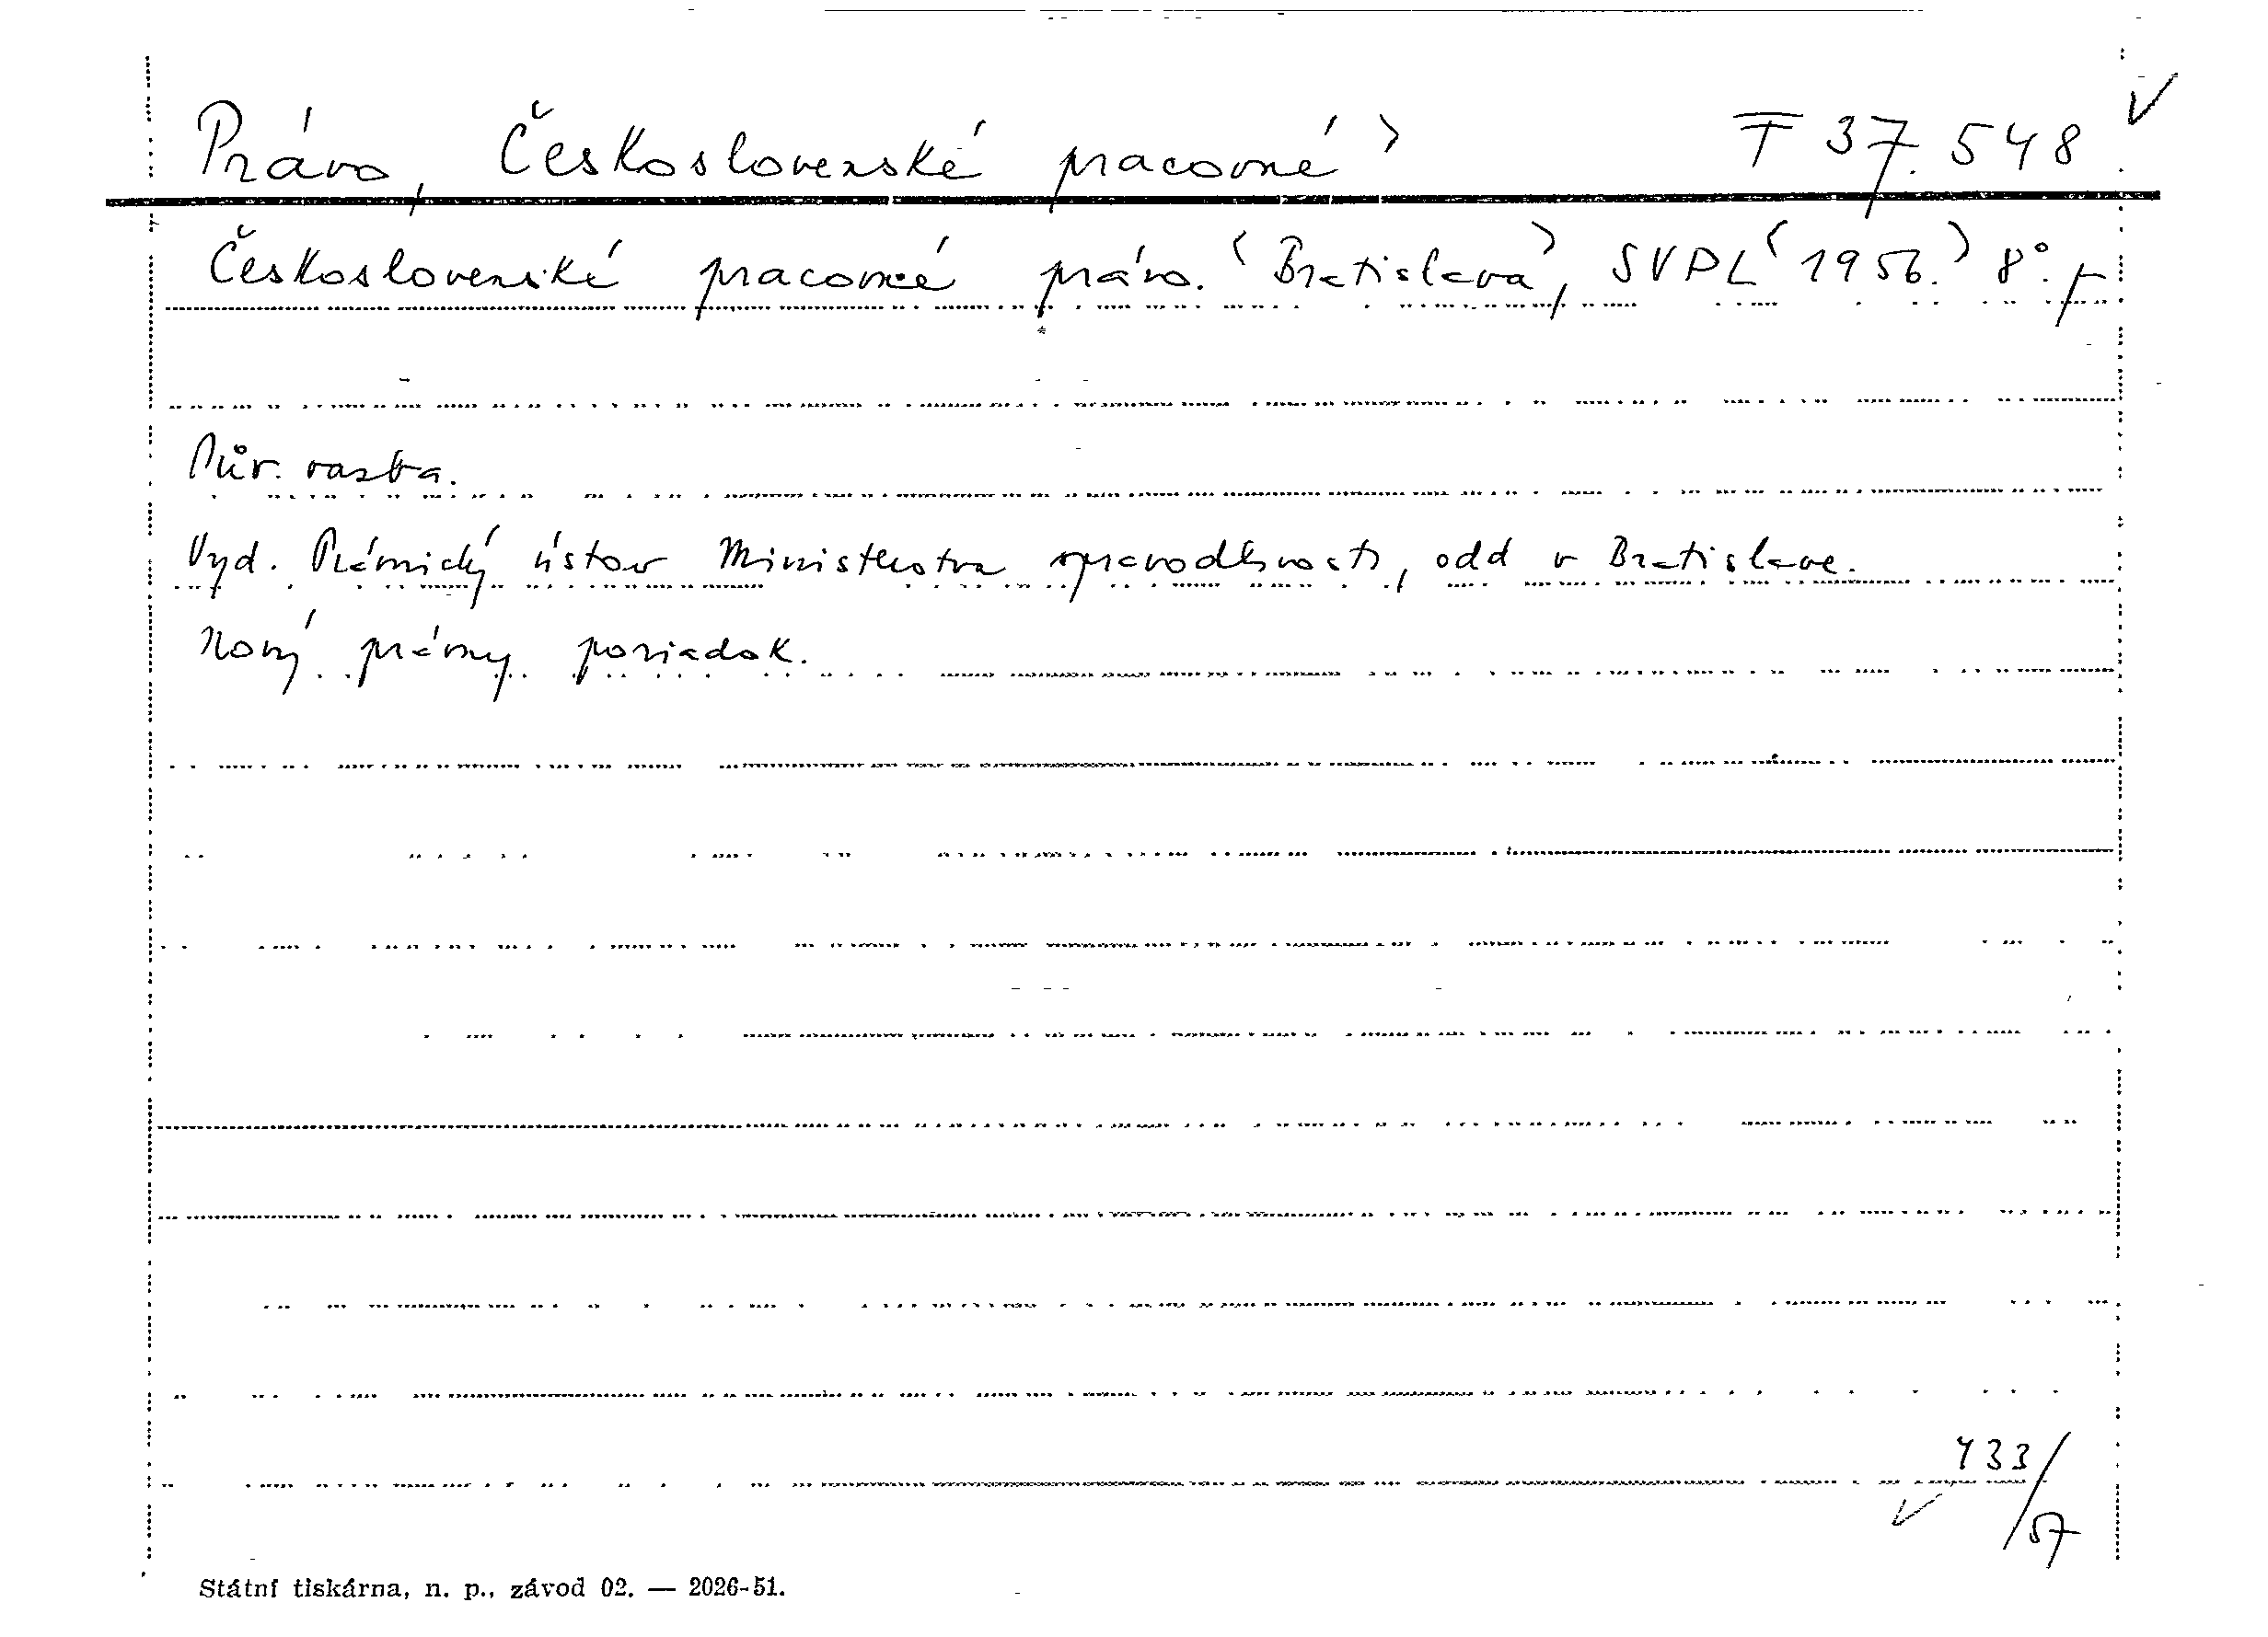 Právo, Československé pracovné> T 37.548 ✓
Československé pracovné právo. (Bratislava), SVPL (1956.) 8°.
Pův. vazba.
Vyd. Právnický ústav Ministerstva spravodlivosti, odd v Bratislave.
Nový právny poriadok.
433/57 ✓
Státní tiskárna, n. p., závod 02. — 2026-51.